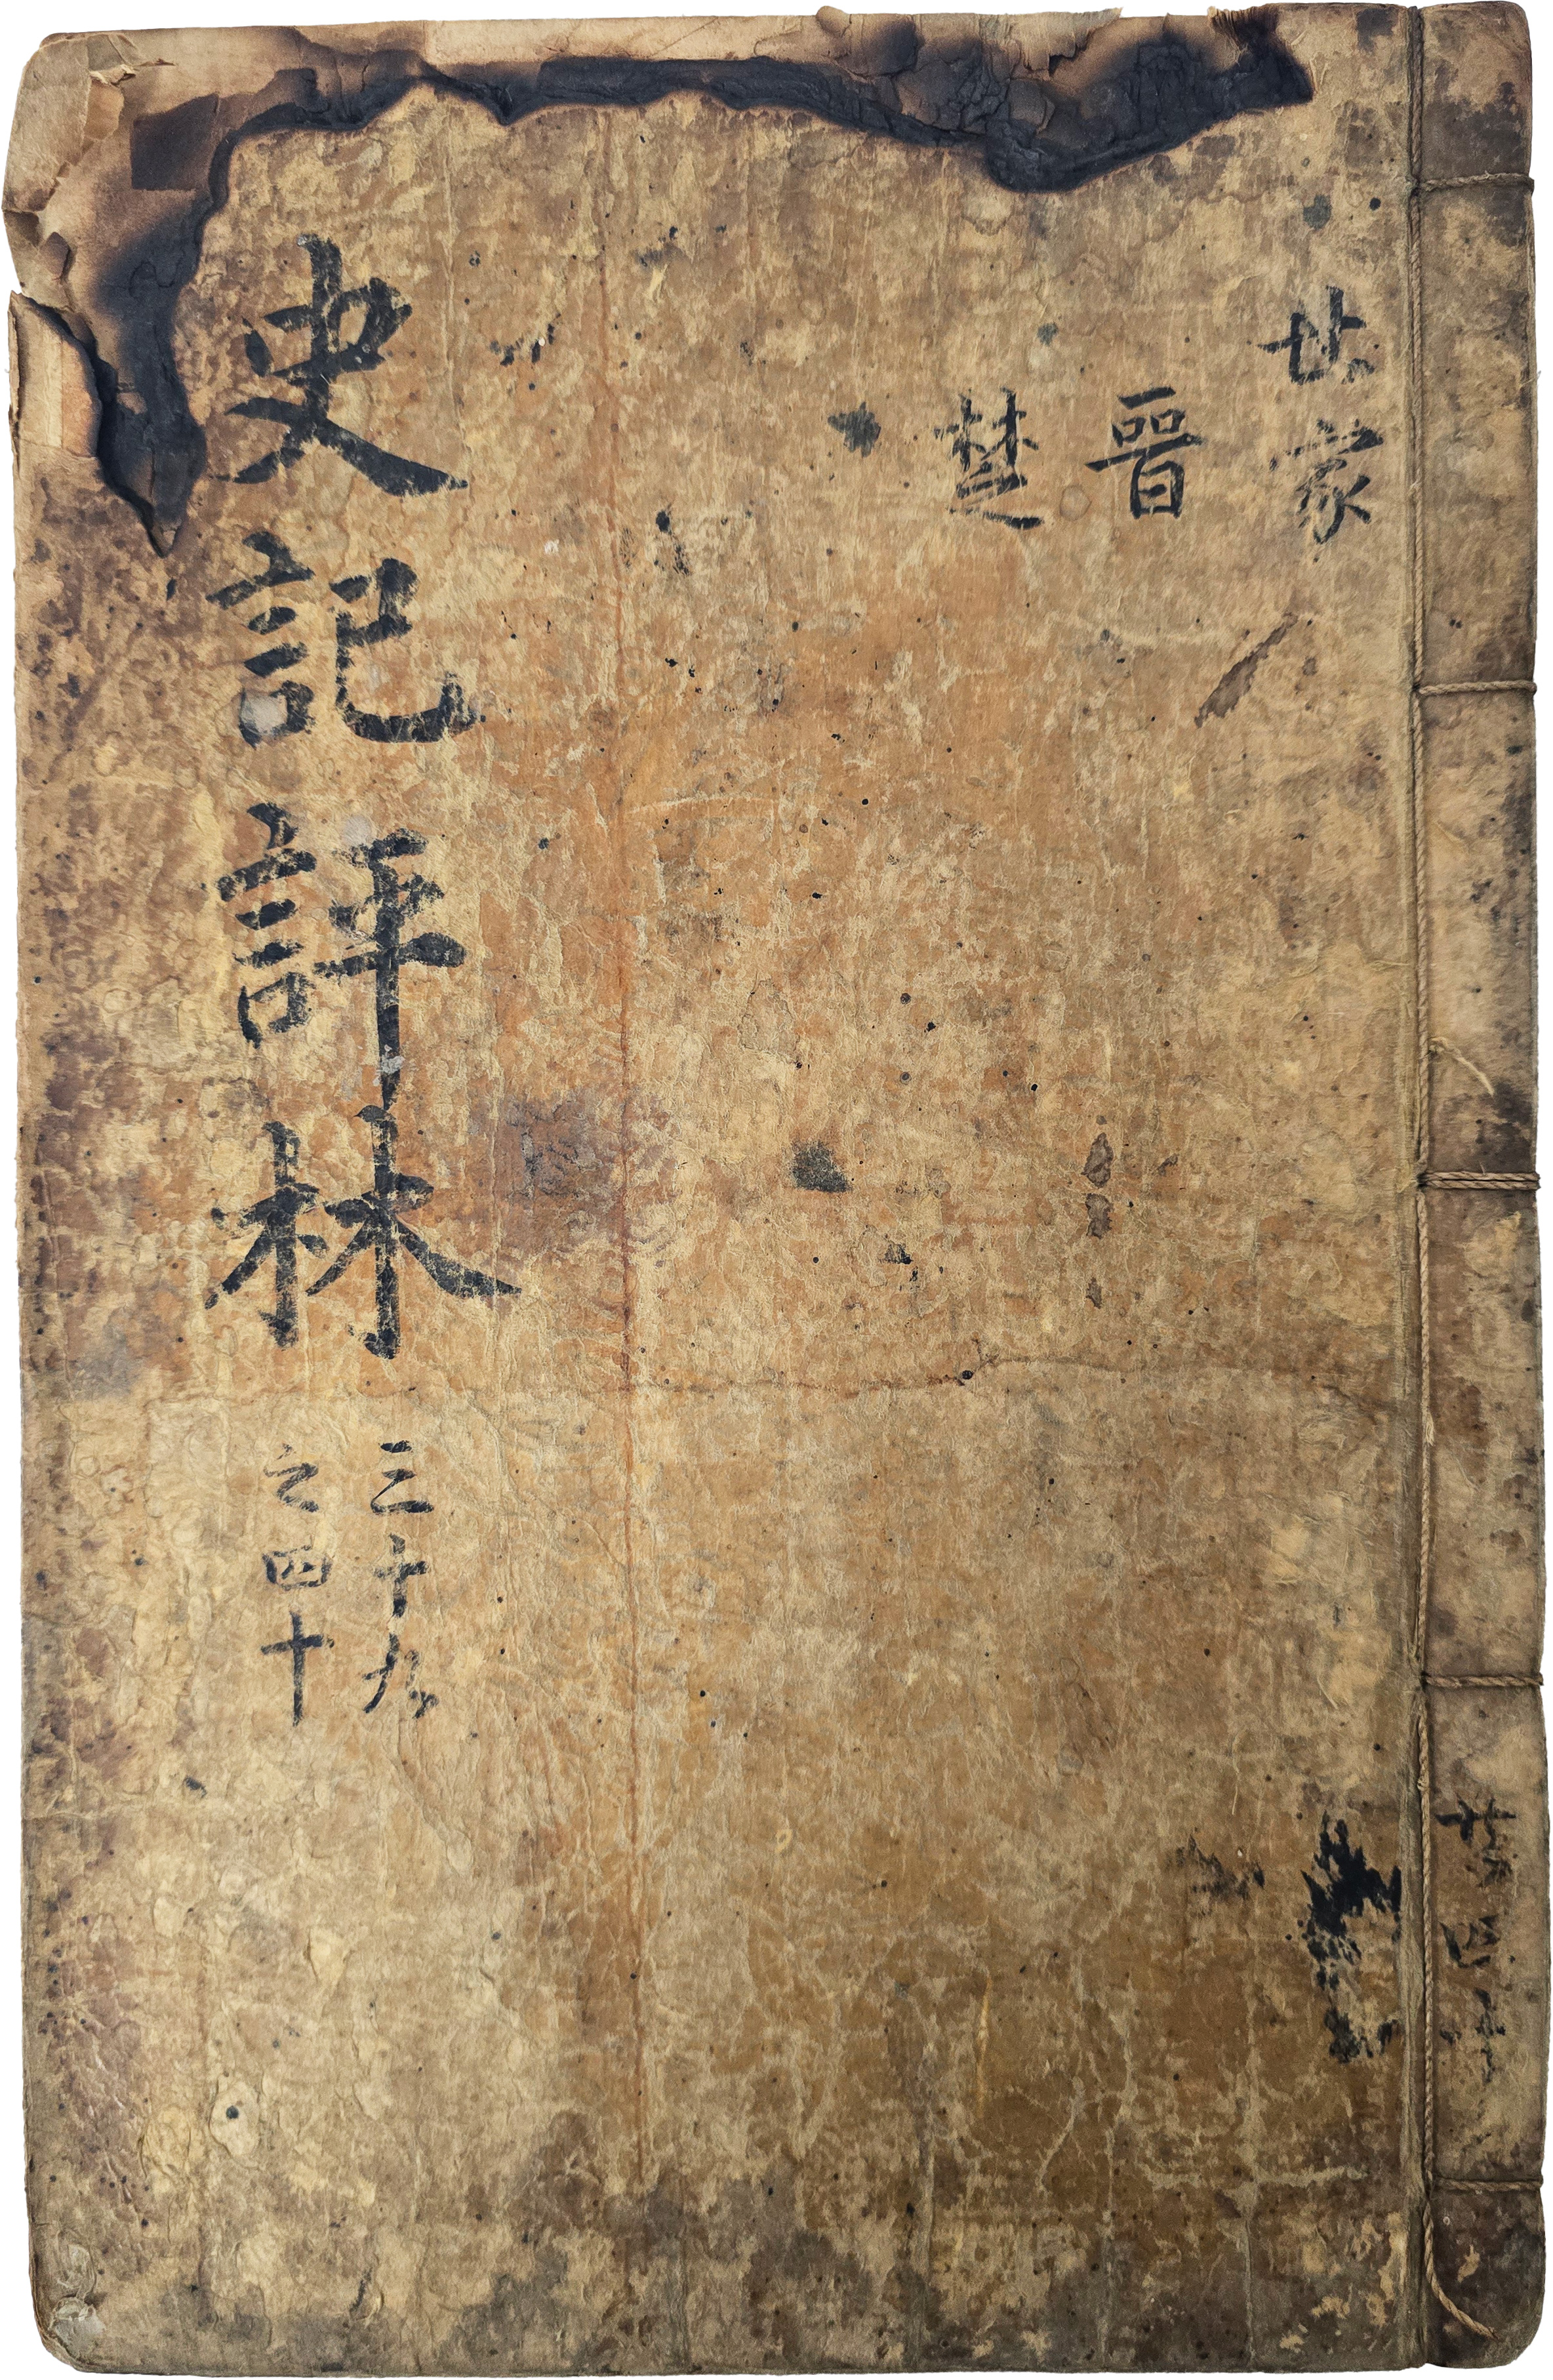 世家
晉
楚
史記評林
三十九
之四十